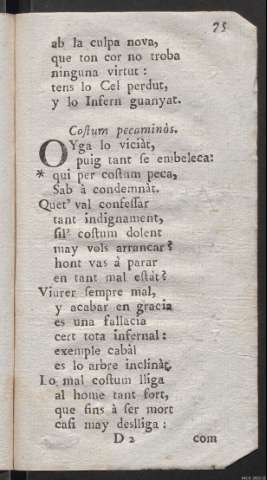 75
ab la culpa nova,
que ton cor no troba
ninguna virtut:
tens lo Cel perdut,
y lo Infern guanyat.
Coſtum pecaminòs.
OYga lo viciàt,
puig tant ſe embeleca:
* qui per coſtum peca,
Sab à condemnàt.
Quet' val confeſſar
tant indignament,
ſil' coſtum dolent
may vols arrancar?
hont vas à parar
en tant mal eſtàt?
Viurer ſempre mal,
y acabar en gracia
es una fallacia
cert tota infernal:
exemple cabàl
es lo arbre inclinàt.
Lo mal coſtum lliga
al home tant fort,
que fins à ſer mort
caſi may deslliga:
D 2 com